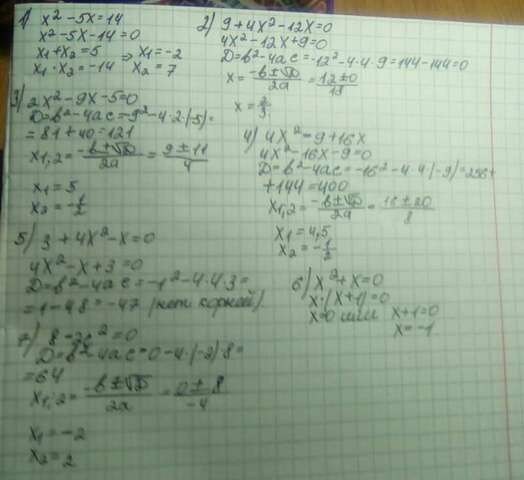 1) x² - 5x = 14
x² - 5x - 14 = 0
x₁ + x₂ = 5 ⇒ x₁ = -2
x₁ · x₂ = -14 x₂ = 7
2) 9 + 4x² - 12x = 0
4x² - 12x + 9 = 0
D = b² - 4ac = -12² - 4·4·9 = 144 - 144 = 0
x = -b ± √D / 2a = 12 ± 0 /
x =
3) 2x² - 9x - 5 = 0
D = b² - 4ac = 9² - 4·2·(-5) =
= 81 + 40 = 121
x₁,₂ = -b ± √D / 2a = 9 ± 11 / 4
x₁ = 5
x₂ = -1/2
4) 4x² = 9 + 16x
4x² - 16x - 9 = 0
D = b² - 4ac = -16² - 4·4·(-9) = 256 +
+ 144 = 400
x₁,₂ = -b ± √D / 2a = 16 ± 20 / 8
x₁ = 4,5
x₂ = -1/2
5) 3 + 4x² - x = 0
4x² - x + 3 = 0
D = b² - 4ac = -1² - 4·4·3 =
= 1 - 48 = -47 (нет корней)
6) x² + x = 0
x·(x + 1) = 0
x = 0 или x + 1 = 0
x = -1
7) 8 - 2x² = 0
D = b² - 4ac = 0 - 4·(-2)·8 =
= 64
x₁,₂ = -b ± √D / 2a = 0 ± 8 / -4
x₁ = -2
x₂ = 2